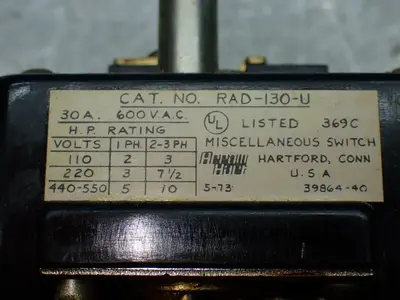 CAT. NO. RAD-130-U
30A. 600 V.A.C.
H.P. RATING
VOLTS 1 PH. 2-3 PH
110 2 3
220 3 7 1/2
440-550 5 10
UL LISTED 369C
MISCELLANEOUS SWITCH
Arrow Hart HARTFORD, CONN
U.S.A
5-73 39864-40